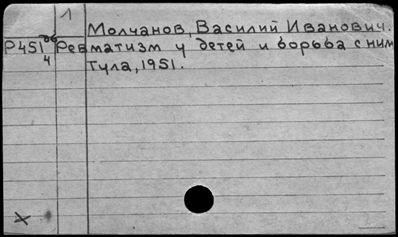 1
Молчанов, Василий Иванович.
Р451 Ревматизм у детей и борьба с ним
4 Тула, 1951.